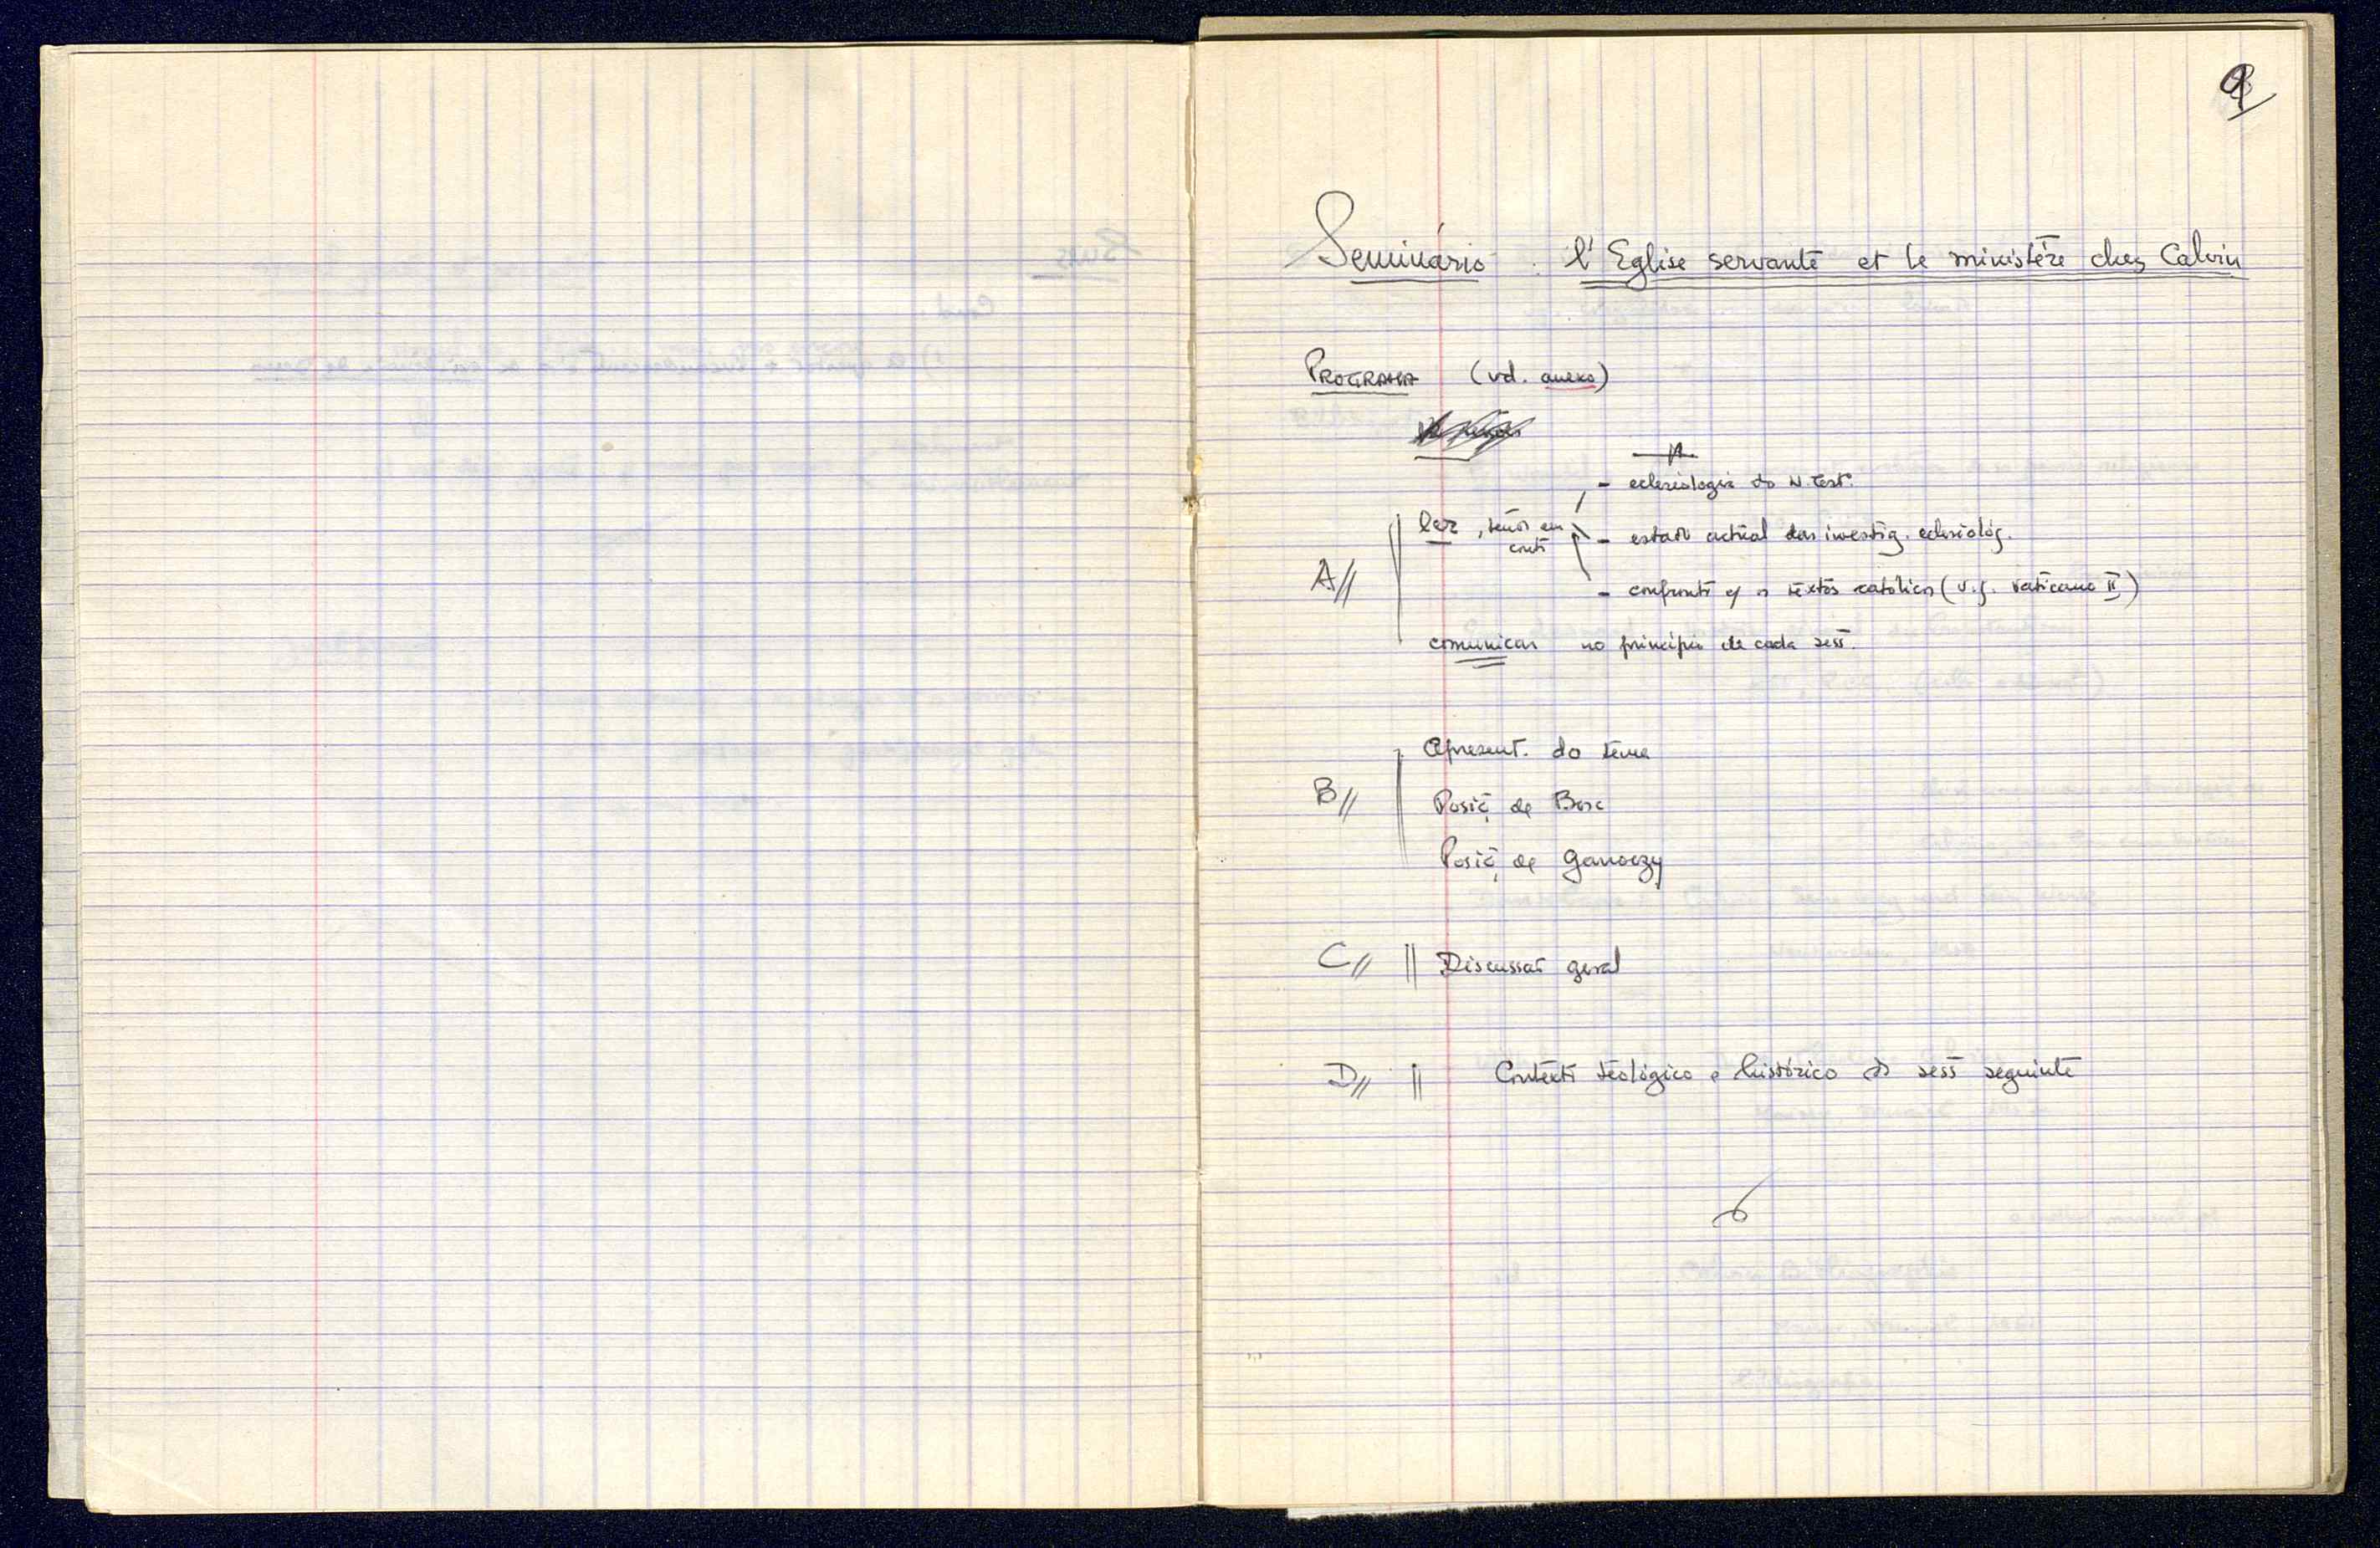 9
Seminário : l'Eglise servante et le ministère chez Calvin
PROGRAMA (vd. anexo)
- eclesiologia do N. Test.
ler, tendo em
conta
- estado actual das investig. eclesiológ.
A//
- confronto c/ os textos católicos (v.g. Vaticano II)
comunicar no princípio de cada sess.
Apresent. do tema
B//
Posiç. de Bosc
Posiç. de Ganoczy
C// || Discussão geral
D// || Contexto teológico e histórico da sess seguinte